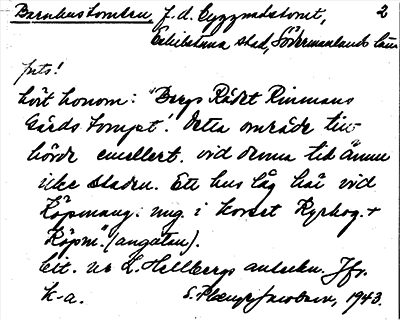 Barnhustomten, f.d. Byggmästaret, 2
Eskilstuna stad, Södermanlands län
forts!
hört honom: "Bergs Rådet Rinmans
Gårds tompt." Detta område till-
hörde emellert. vid denna tid ännu
icke staden. Ett hus låg här vid
Köpmang: mig. i korset Kyrkog. +
Köpm." (angatan).
Citt. ur L. Hellbergs anteckn. Jfr.
k-a. S. Jacobson, 1943.